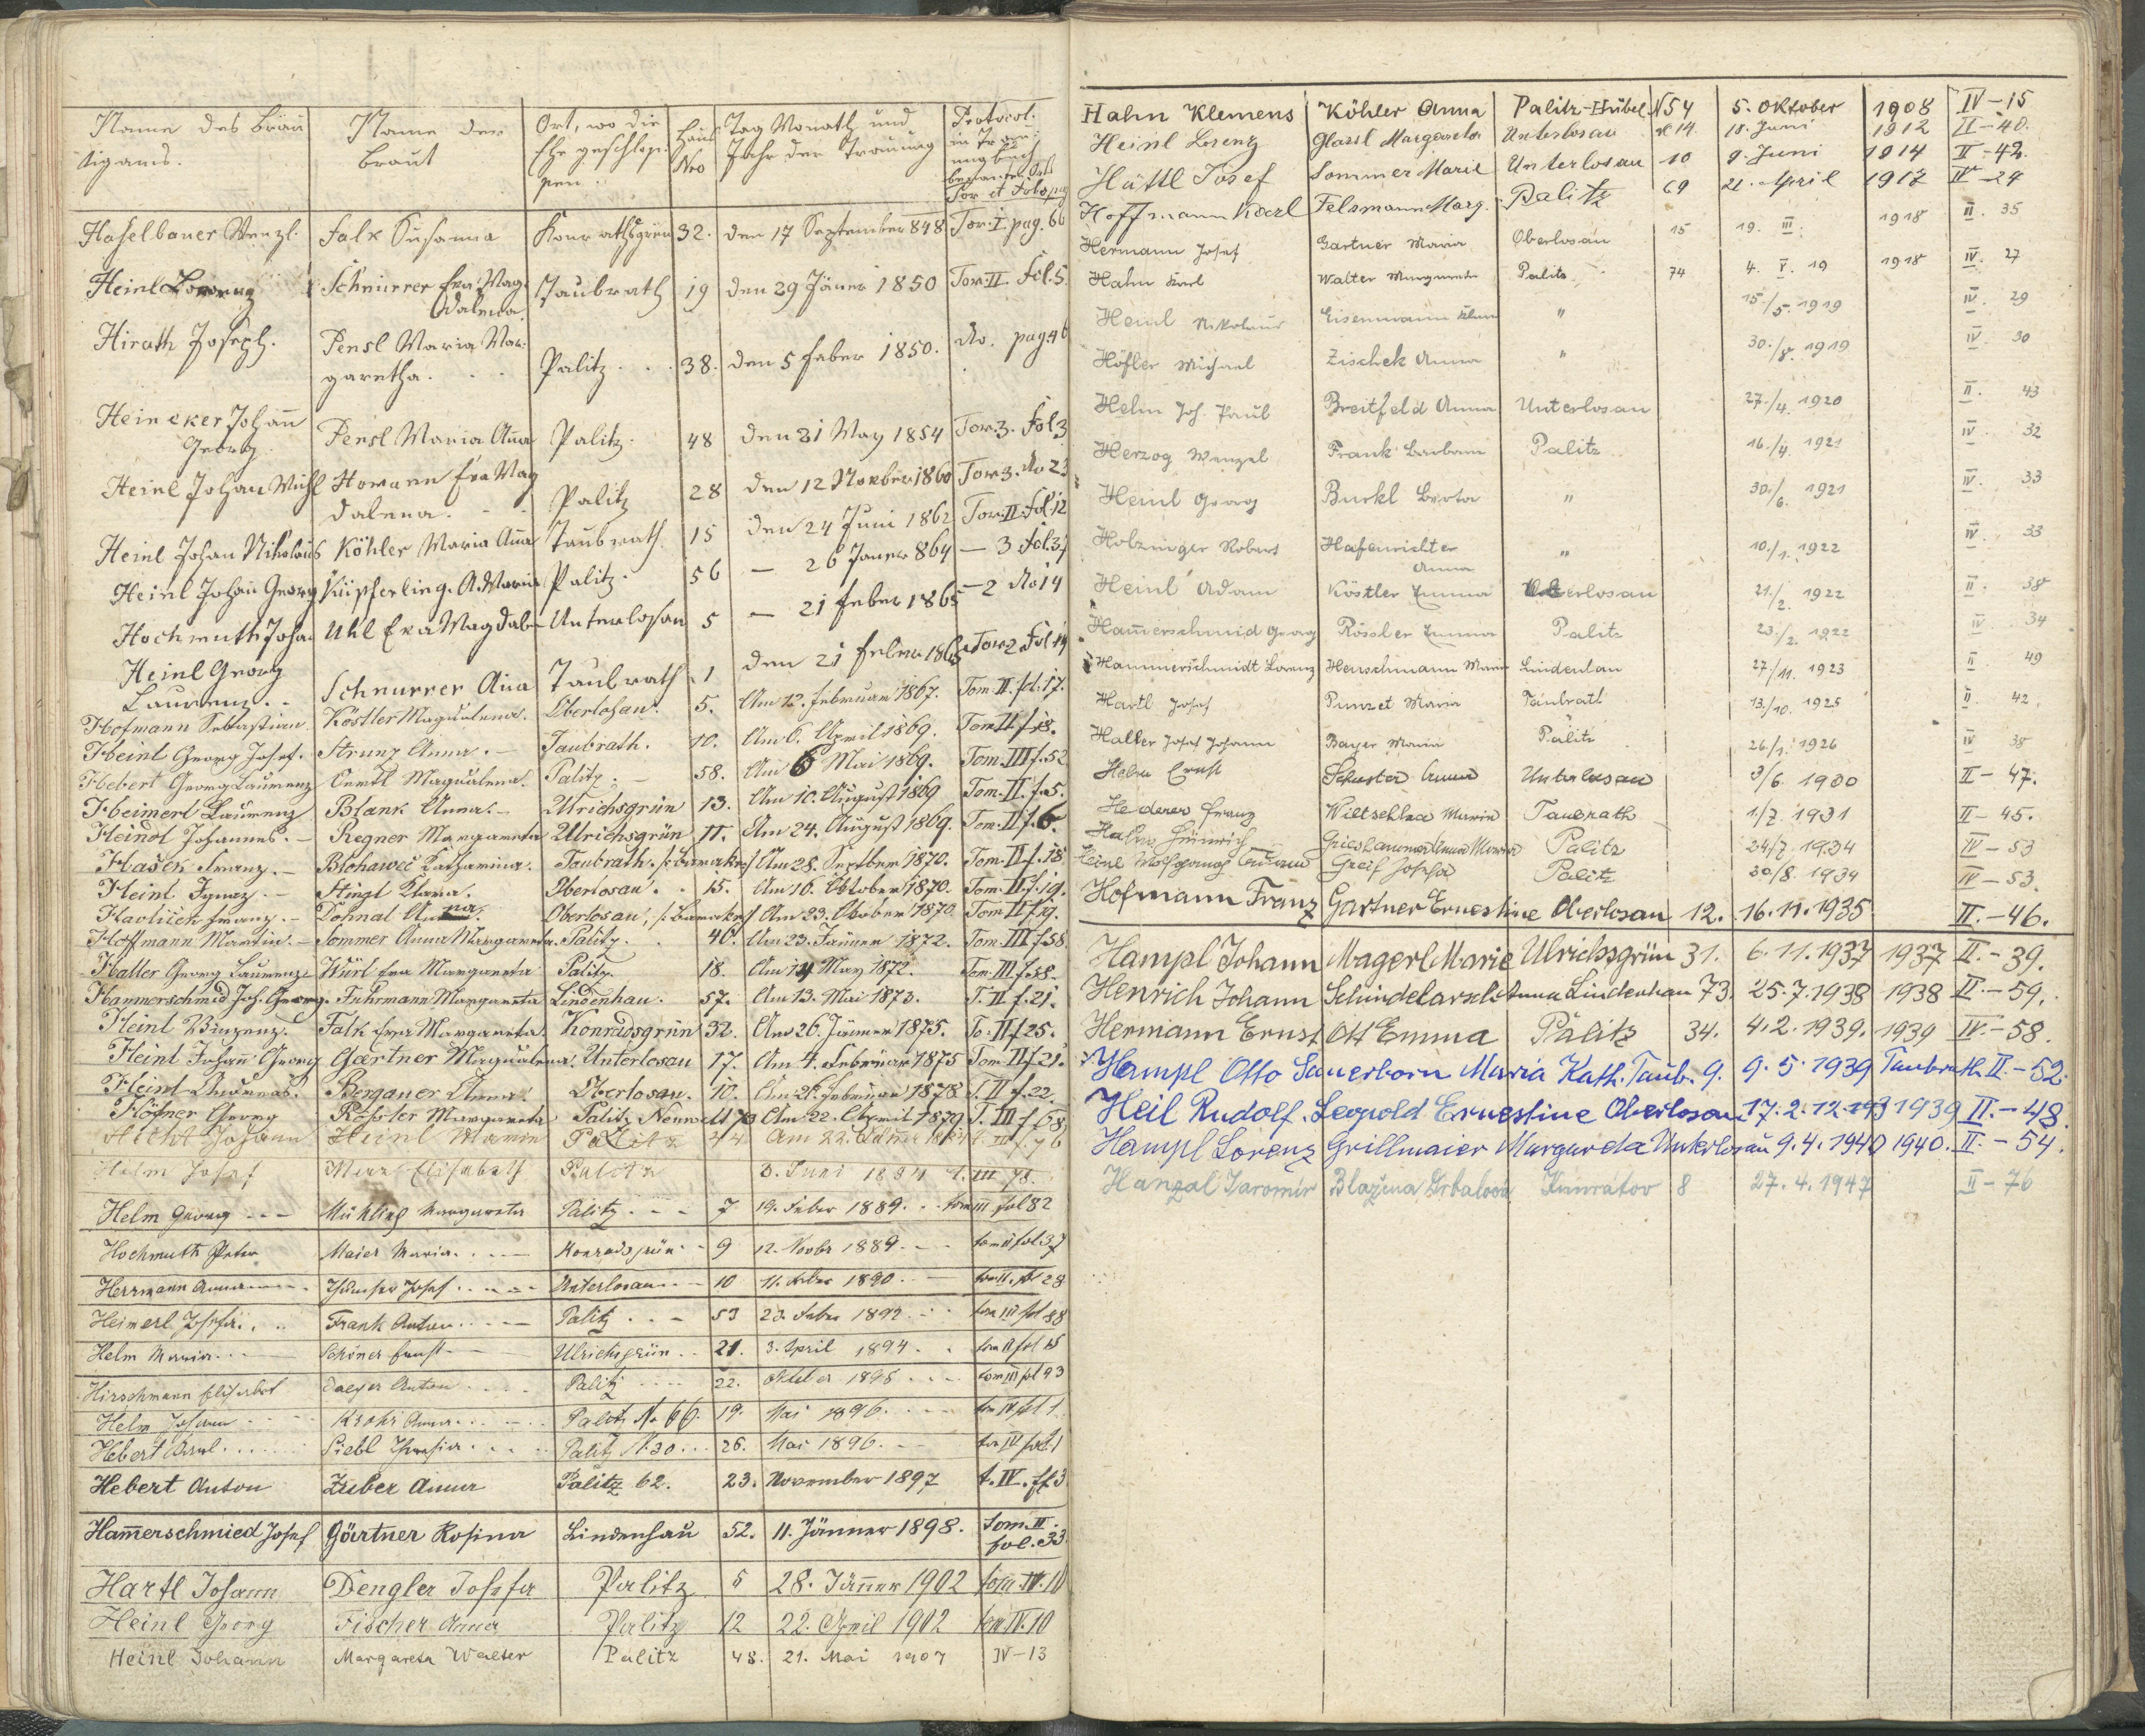 Name des Bräu
tigams.
Name der
Braut
Ort, wo die
Ehe geschlos:
sen.
Haus
Nro
Tag Monath und
Jahr der Trauung
Protocol.
in Trau:
ungsbuch
Tor et Folo pag
Haselbauer Wenzl. Falk Susanna Konrathsgrün 32. den 17 September 848 Tor: I. pag. 66
Heinl Lorenz Schnurrer Eva Mag: Taubrath 19 den 29 Jäner 1850 Tor: II Fol. 5.
dalena.
Hirath Joseph. Pensl Maria Mar:
garetha. Palitz 38. den 5 Feber 1850. do. pag 46
Heineker Johañ
Georg. Pensl Maria Aña Palitz. 48 den 21 May 1854 Tor. 3. Fol 3
Heinl Johan Michl Homann Eva Mag
dalena. Palitz 28 den 12 November 1860 Tor 3. No 23
Heinl Johan Nikolaus Köhler Maria Aña Taubrath. 15 den 24 Juni 1862 Tor: II. Fol 12
Heinl Johañ Georg Küpferling. A. Maria Palitz. 56 — 26 Janer 864 — 3 Fol. 37
Hochmuth Johan Uhl Eva Magdalen Unterlosan 5 — 21 Feber 1865 — 2 No 14
Heinl Georg
Laurenz. Schnurrer Aña Taubrath 1 den 21 Feber 1865 Tor 2 Fol 14
Hofmann Sebastian Köstler Magdalena. Oberlosan. 5. Am 12. Februar 1867. Tom. II. fol. 17.
Heinl Georg Josef. Strunz Anna. Taubrath. 10. Am 6. April 1869. Tom II f. 18.
Hebert Georg Laurenz Oertl Magdalena. Palitz. 58. Am 6 Mai 1869. Tom. III f. 52
Heimerl Laurenz Blank Anna. Ulrichsgrün 13. Am 10. August 1869 Tom. II. f. 5.
Heindl Johannes. Regner Margareta Ulrichsgrün 11. Am 24. August 1869. Tom. II f. 6.
Hašek Franz. Blohawec Katharina. Taubrath. Am 28. September 1870. Tom. II f. 18
Heinl Ignaz. Stingl Maria. Oberlosan. 15. Am 10. Oktober 1870. Tom. II f. 19.
Havliček Franz. Dohnal Anna. Oberlosan, Am 23. Oktober 1870. Tom II f. 19.
Hoffmann Martin. Sommer Anna Margareta. Palitz. 40. Am 23. Jänner 1872. Tom. III f. 58
Haller Georg Laurenz. Würl Eva Margareta Palitz. 18. Am 14 May 1872. Tom. III f. 58.
Hammerschmid Joh. Georg. Fuhrmann Margareta Lindenhau. 57. Am 13. Mai 1873. T. II f. 21.
Heinl Vinzenz. Falk Eva Margareta Konradsgrün 32. Am 26. Jänner 1875. To. II f 25.
Heinl Johann Georg Gaertner Magdalena. Unterlosau 17. Am 4. Februar 1875 Tom. II f 21.
Heinl Andreas. Bergauer Anna. Oberlosan. 10. Am 26. Februar 1878 T. II f. 22.
Höfner Georg Rössler Margareta Palitz Am 22. April 1879. T. III f 68
Hecht Johann Heinl Maria Palitz
Helm Josef Elisabeth Palitz 3. Juni 1884 t. III 78.
Helm Georg Mühling Margareta Palitz 7 19. Feber 1889. tom III fol 82
Hochmuth Peter Maier Maria. Konradsgrün 9 12. Novbr 1889. tom II fol 37
Herrmann Anna Josef Unterlosan 10 11. Feber 1890. tom II. fol 28
Heimerl Josefa. Frank Anton Palitz 53 23. Feber 1892 tom III fol 88
Helm Maria. Schöner Ernst Ulrichsgrün 21. 3. April 1894. tom II fol 15
Hirschmann Elisabet Anton Palitz 22. Oktober 1895 tom III fol 93
Helm Johann Krohs Anna Palitz No 66. 19. Mai 1896. tom IV fol 1
Hebert Karl Liebl Theresia Palitz N. 30 26. Mai 1896. tom IV fol 1
Hebert Anton Zuber Anna Palitz 62. 23. November 1897 t. IV. f. 3
Ham̄erschmied Josef Gärtner Rosina Lindenhau 52. 11. Jänner 1898. tom. II.
fol. 33.
Hartl Johann Dengler Josefa Palitz 5 28. Jänner 1902 tom. IV. 10
Heinl Georg Fischer Anna Palitz 12 22. April 1902 tom IV. 10
Heinl Johann Margareta Walter Palitz 48. 21. Mai 1907 IV – 13
Hahn Klemens Köhler Anna Palitz-Hübel N 54 5. Oktober 1908 IV – 15
Heinl Lorenz Glassl Margareta Unterlosau N 14. 18. Juni 1912 II – 40.
Hüttl Josef Sommer Marie Unterlosau 10 9. Juni 1914 II – 42.
Hoffmann Karl Felsmann Marg. Palitz 69 21. April 1917 IV – 24
Hermann Josef Gartner Maria Oberlosan 15 19. III. 1918 II. 35
Hahn Karl Walter Margareta Palitz 74 4. V. 19 1918 IV. 27
Heinl Nikolaus Eisenmann " 15./5. 1919 IV. 29
Höfler Michael Zischek Anna " 30./8. 1919 IV. 30
Helm Joh. Paul Breitfeld Anna Unterlosau 27./4. 1920 II. 43
Herzog Wenzel Frank Barbara Palitz 16./4. 1921 IV. 32
Heinl Georg Burkl Berta " 30./6. 1921 IV. 33
Holzinger Robert Hafenrichter
Anna " 10./1. 1922 IV. 33
Heinl Adam Köstler Emma Oberlosau 21./2. 1922 II. 38
Ham̄erschmid Georg Rössler Emma Palitz 23./2. 1922 IV 34
Hammerschmidt Lorenz Herschmann Maria Lindenhau 27./11. 1923 II. 49
Hartl Josef Punzet Maria Taubrath 13./10. 1925 II. 42.
Haller Josef Johann Bayer Maria Palitz 26./1. 1926 IV 38
Helm Ernst Schuster Anna Unterlosau 3/6. 1930 II – 47.
Hederer Franz Wiltschka Maria Taubrath 1./7. 1931 II – 45.
Hahn Heinrich Grieshammer Anna Maria Palitz 24/7. 1934 IV – 53
Heinl Wolfgang Greif Josefa Palitz 30/8. 1934 IV – 53.
Hofmann Franz Gartner Ernestine Oberlosan 12. 16. 11. 1935 II. – 46.
Hampl Johann Magerl Marie Ulrichsgrün 31. 6. 11. 1937 1937 II. – 39.
Henrich Johann Schindelarsch Anna Lindenhau 73. 25. 7. 1938 1938 II. – 59.
Hermann Ernst Ott Emma Palitz 34. 4. 2. 1939. 1939 IV. – 58.
Hampl Otto Sauerborn Maria Kath. Taub. 9. 9. 5. 1939 Taubrath II. – 52.
Heil Rudolf. Leopold Ernestine Oberlosan 17. 2. 12. 193 1939 II. – 48.
Hampl Lorenz Grillmaier Margareta Unterlosau 9. 4. 1940 1940. II. – 54.
Hanzal Jaromír Blažena Hrbalová Kunratov 8 27. 4. 1947 II – 76